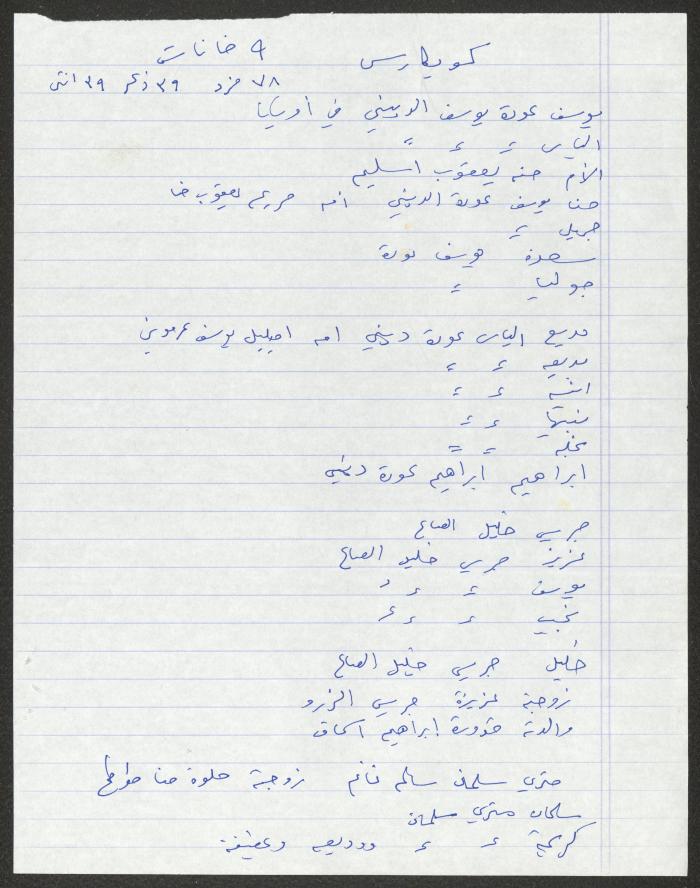 كويكارس ٩ خانات
٧٨ فرد ٣٩ ذكر ٣٩ انثى
يوسف عودة يوسف الديني في أوربا
الياس = = =
الأم حنه يعقوب اسليم
حنا يوسف عودة الديني امه مريم يعقوب حنا
جميل =
سعدة يوسف عودة
جوليا =
وديع الياس عودة ديني امه اميليل يوسف
بديعه = =
انيسه = =
= =
نجلة = =
ابراهيم ابراهيم عودة ديني
جريس خليل الصباغ
عزيز جريس خليل الصباغ
يوسف = = =
نجيب = = =
خليل جريس خليل الصباغ
زوجته عزيزة جريس الزرو
والدته ابراهيم اسحاق
متري سلمان سالم غانم زوجته حلوة حنا
سلمان متري سلمان
كريمة = = ووديعه وعفيفة